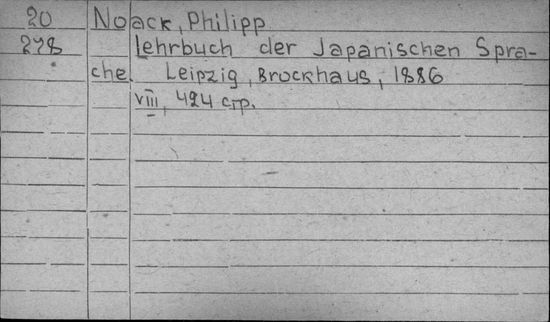 20 Noack, Philipp
278 Lehrbuch der Japanischen Spra-
che. Leipzig, Brockhaus, 1886
VIII, 424 стр.